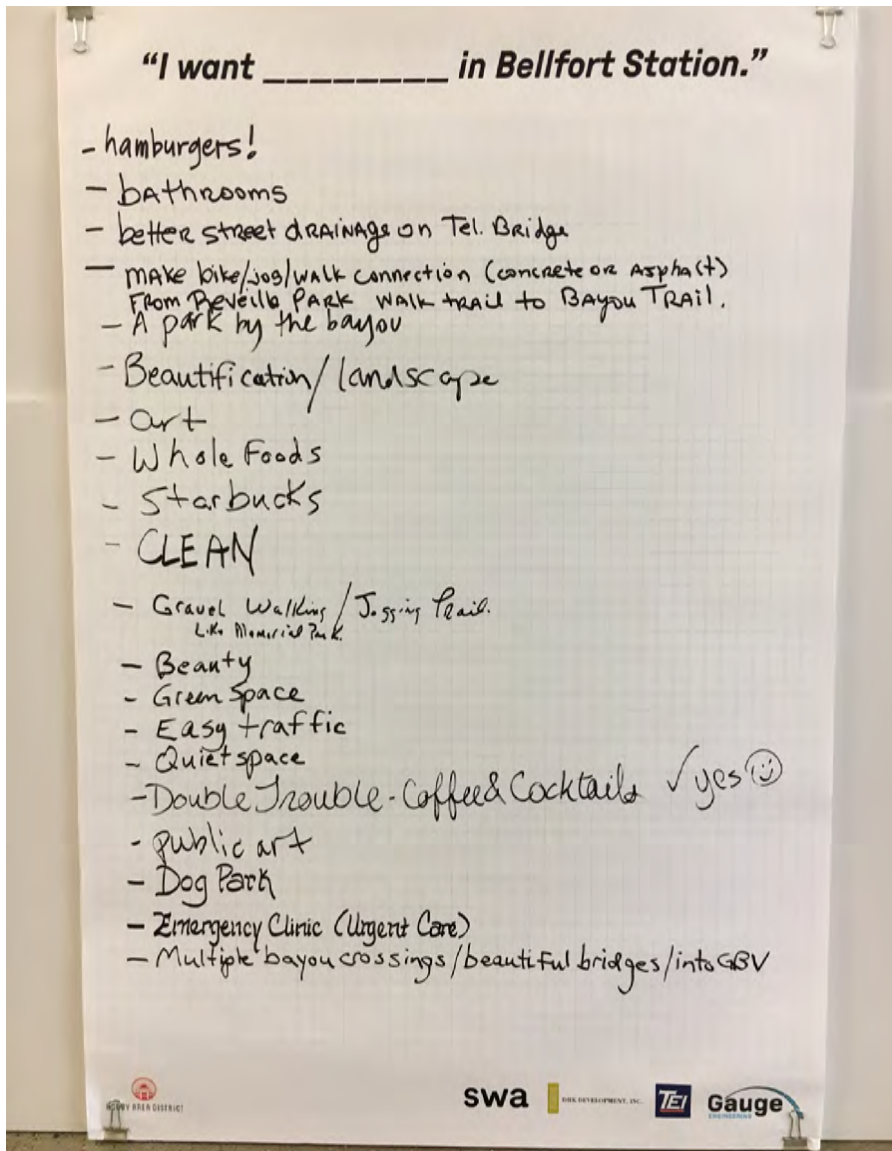 “I want ________ in Bellfort Station.”
- hamburgers!
- bathrooms
- better street drainage on Tel. Bridge
- make bike/jog/walk connection (concrete or asphalt)
from Reveille Park walk trail to Bayou Trail.
- A park by the bayou
- Beautification/landscape
- art
- Whole Foods
- Starbucks
- CLEAN
- Gravel Walking / Jogging Trail.
Like Memorial Park
- Beauty
- Green Space
- Easy traffic
- Quiet space
- Double Trouble - Coffee & Cocktails ✓ yes ☺
- public art
- Dog Park
- Emergency Clinic (Urgent Care)
- Multiple bayou crossings/beautiful bridges/into GBV
AREA DISTRICT
swa
DEVELOPMENT, INC.
TEI
Gauge
ENGINEERING